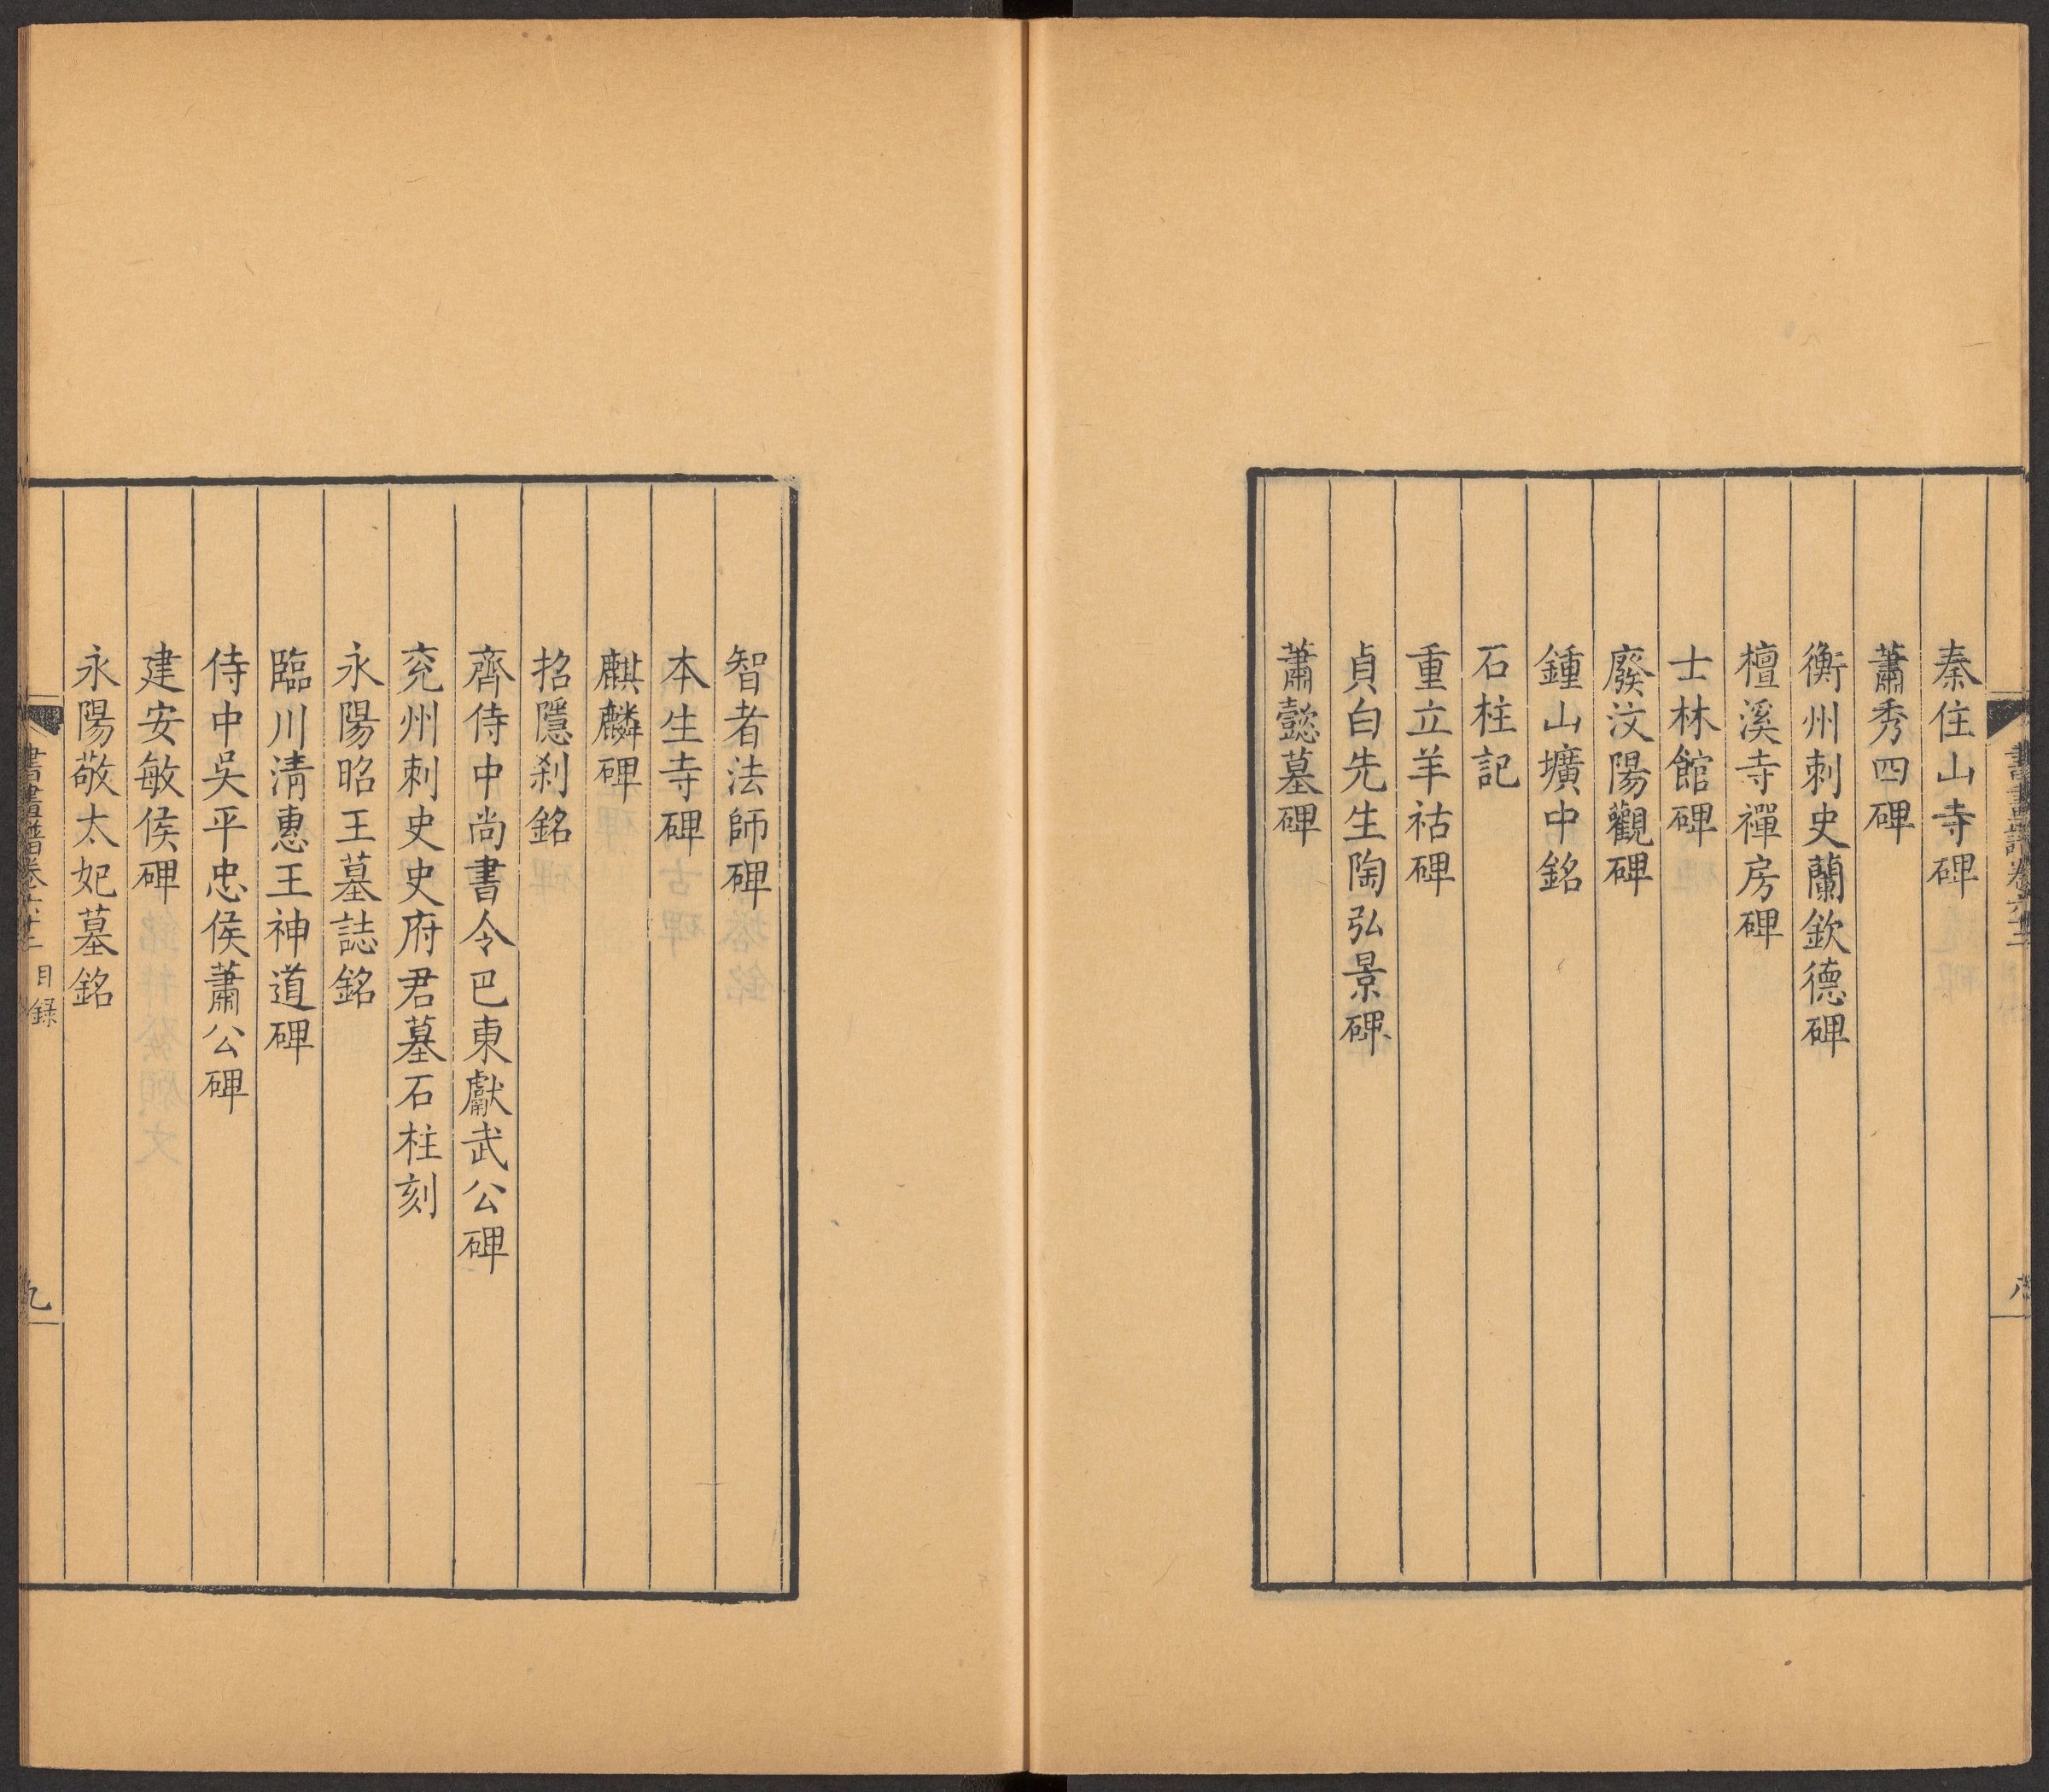 秦住山寺碑
蕭秀四碑
衡州刺史蘭欽德碑
檀溪寺禪房碑
士林館碑
廢汶陽觀碑
鍾山壙中銘
石柱記
重立羊祜碑
貞白先生陶弘景碑
蕭懿墓碑
智者法師碑
本生寺碑
麒麟碑
招隱剎銘
齊侍中尚書令巴東獻武公碑
兖州刺史史府君墓石柱刻
永陽昭王墓誌銘
臨川清惠王神道碑
侍中吳平忠侯蕭公碑
建安敏侯碑
永陽敬太妃墓銘
書畫譜卷六十二 目錄
九